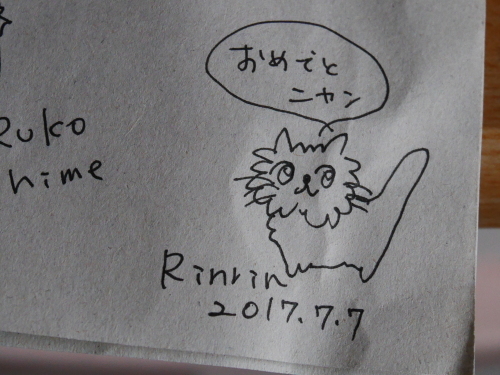 おめでと
ニャン
Ruko
hime
Rinrin
2017.7.7